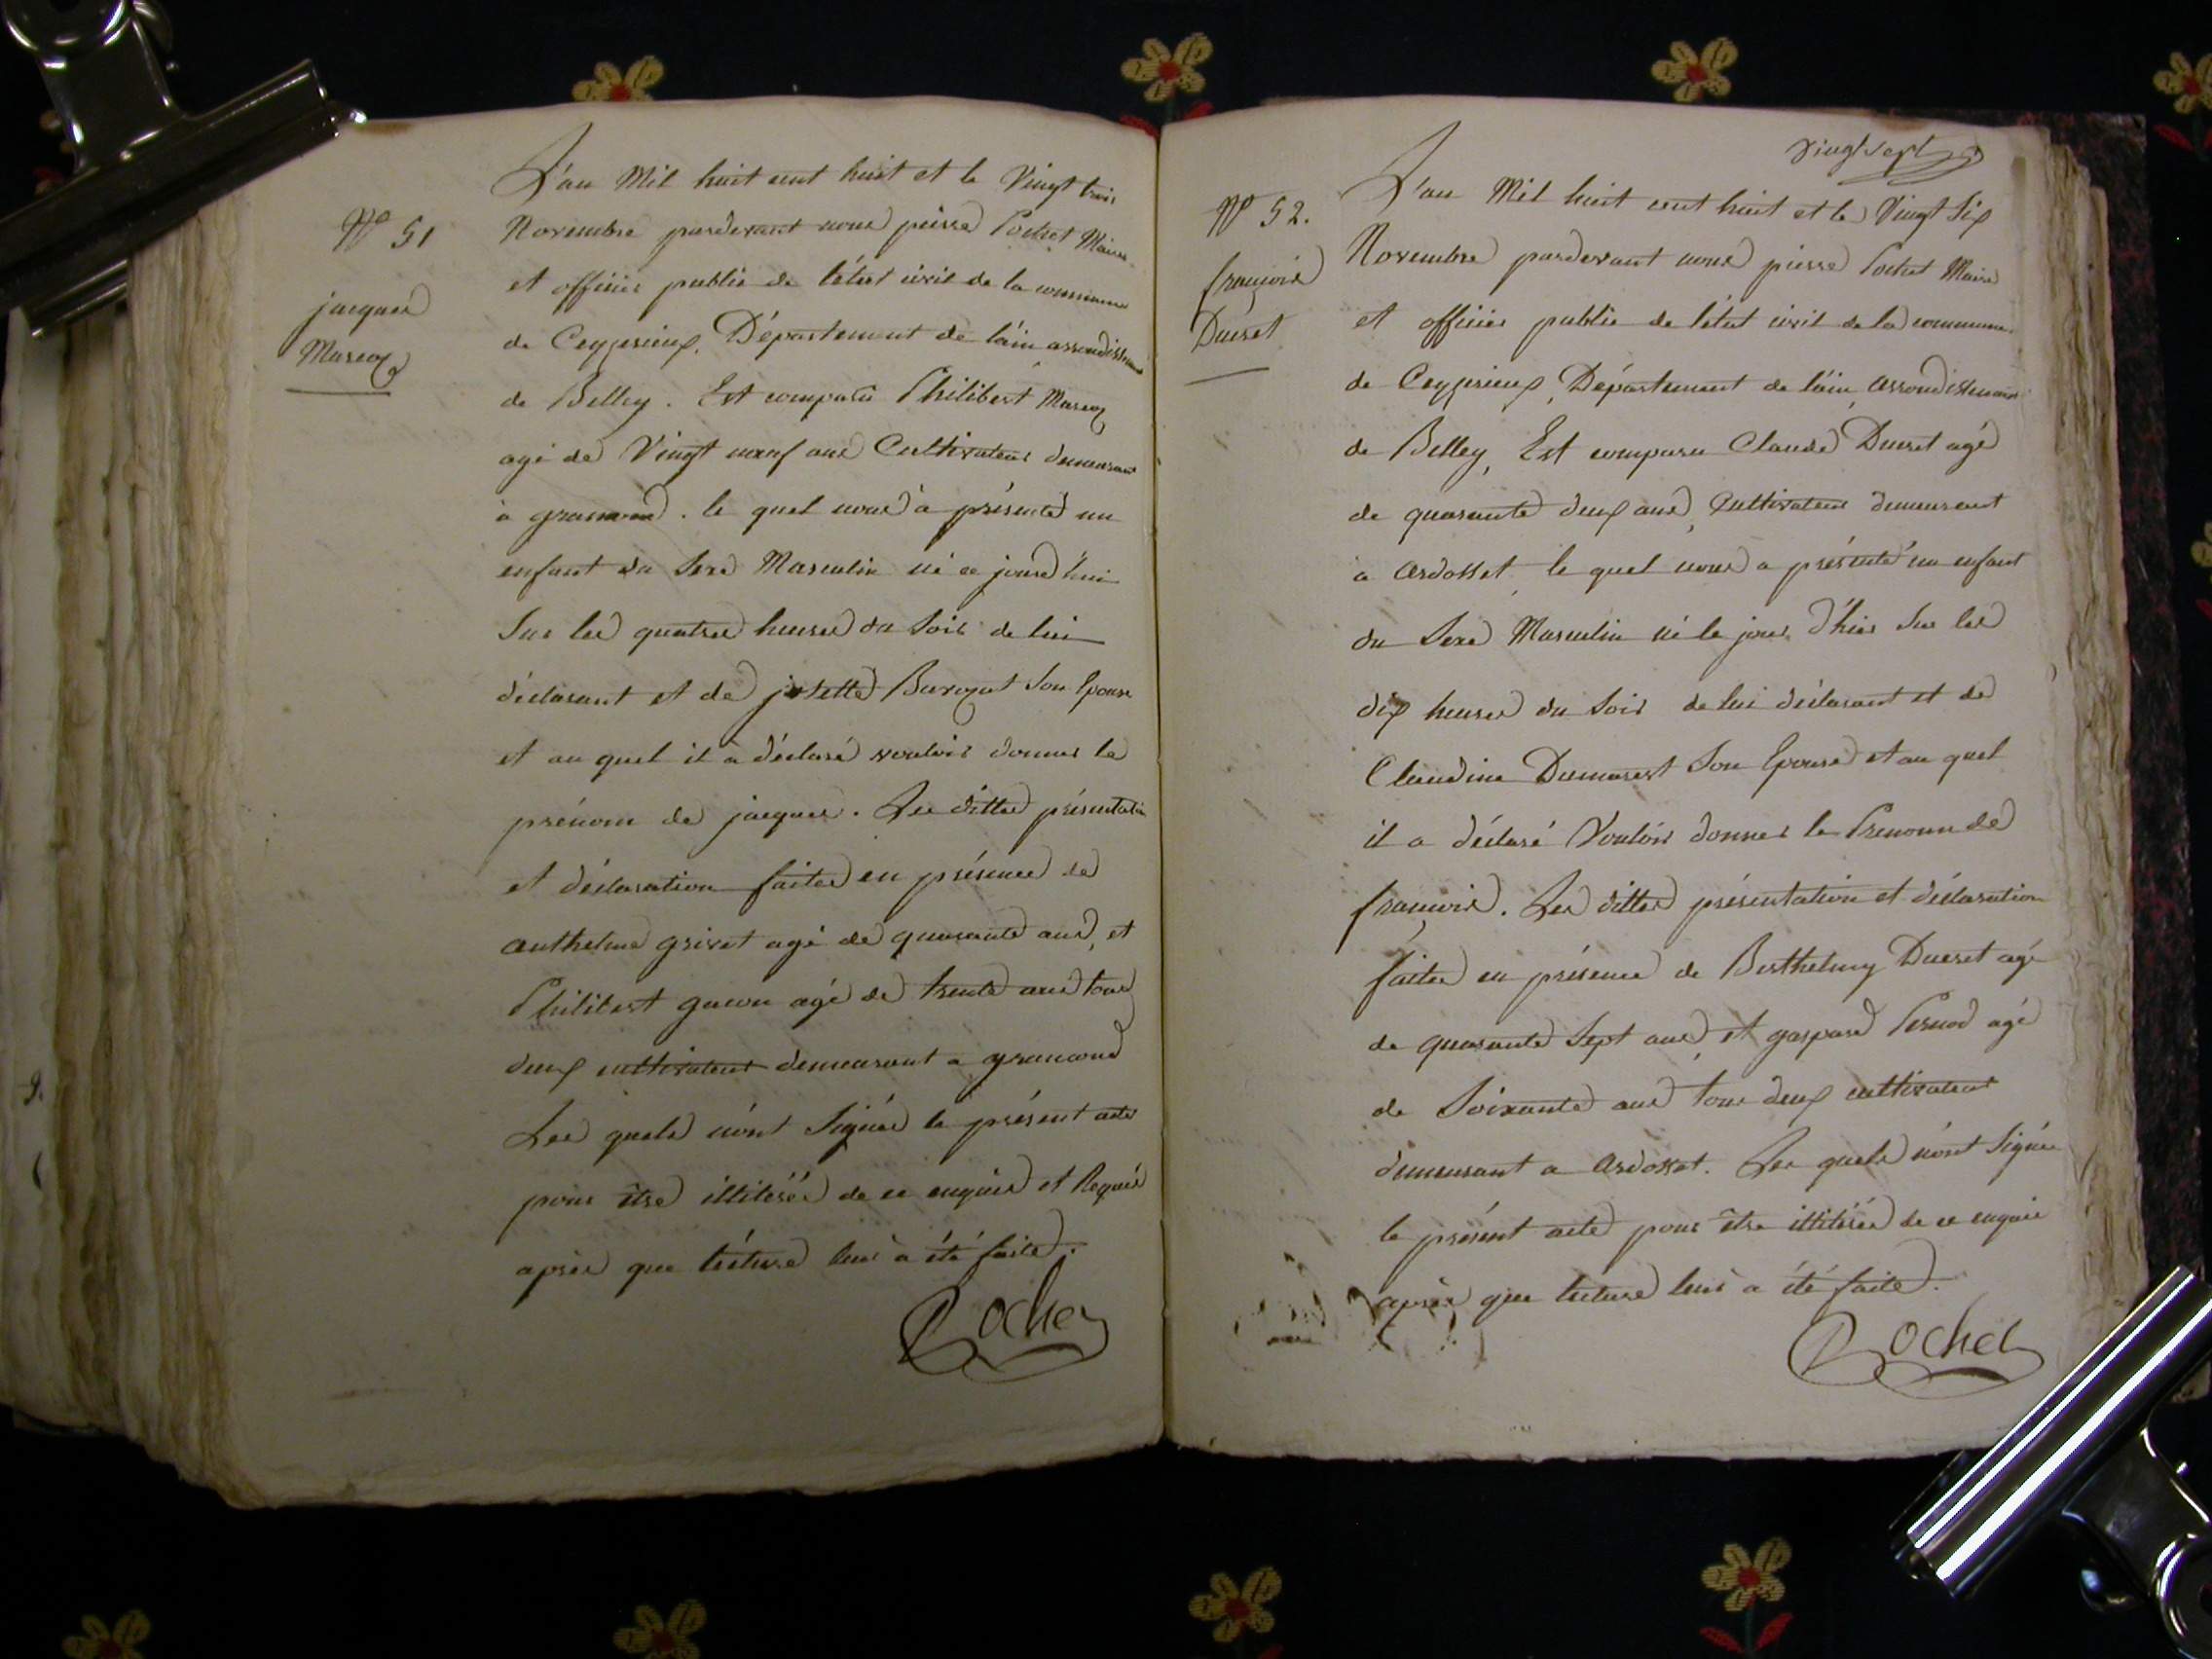 L'an Mil huit cent huit et le Vingt trois
Novembre pardevant nous pierre Pochet Maire
et officier public de l'état civil de la commune
de Ceyzerieux, Département de l'ain arrondissement
de Belley. Est comparû Philibert Marcoz
agé de Vingt neuf ans Cultivateur demeurant
à grammond. le quel nous à présenté un
enfant du Sexe Masculin né ce jourd'hui
Sur les quatres heures du Soir de lui
déclarant et de josette Son Epouse
et au quel il à déclaré vouloir donner le
prénom de jacques. Les dittes présentation
et déclaration faites en présence de
anthelme grivet agé de quarante ans, et
Philibert gacon agé de trente ans tous
deux cultivateur demeurant a
Les quels n'ont Signés le présent acte
pour être illitérés de ce enquis et Requis
après que lécture leur à été faite.
Pochet
N° 51
jacques
Marcoz
vingt sept
L'an Mil huit cent huit et le Vingt Six
Novembre pardevant nous pierre Pochet Maire
et officier public de l'état civil de la commune
de Ceyzerieux, Département de l'ain, arrondissement
de Belley, Est comparu Claude Ducret agé
de quarante deux ans, Cultivateur demeurant
a ardosset, le quel nous a présenté un enfant
du Sexe Masculin né le jour d'hier Sur les
dix heures du Soir de lui déclarant et de
Claudine Dumarest Son Epouse et au quel
il a déclaré Vouloir donner le Prenom de
françois. Les dittes présentation et déclaration
faites en présence de Berthelmy Ducret agé
de quarante Sept ans, et gaspard Pernod agé
de Soixante ans tous deux cultivateur
demeurant a ardosset. Les quels n'ont Signés
le présent acte pour être illitérés de ce enquis
après que lecture leur a été faite.
Pochet
N° 52.
françois
Ducret